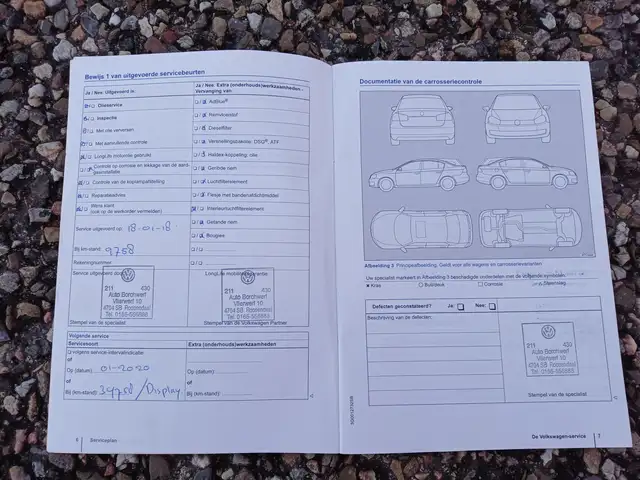 Bewijs 1 van uitgevoerde servicebeurten
Ja / Nee Uitgevoerd in:
Olieservice
Inspectie
Met olie verversen
Met aanvullende controle
LongLife (motor)olie gebruikt
Controle op corrosie en lekkage van de aardgasinstallatie
Controle van de koplampafstelling
Reparatieadvies
Wens klant
(ook op de werkorder vermelden)
Service uitgevoerd op: 18-01-18
Bij km-stand: 9758
Rekeningnummer:
Service uitgevoerd door:
211 430
Auto Borchwerf
Vlierwerf 10
4704 SB Roosendaal
Stempel van de specialist
Ja / Nee Extra (onderhouds)werkzaamheden
Vervanging van
AdBlue®
Remvloeistof
Dieselfilter
Versnellingsbakolie: DSQ®, ATF
Haldex-koppeling: olie
Getande riem
Luchtfilterelement
Flesje met bandenafdichtmiddel
Interieurluchtfilterelement
Getande riem
Bougies
LongLife mobiliteitsgarantie
211 430
Auto Borchwerf
Vlierwerf 10
4704 SB Roosendaal
Stempel van de Volkswagen Partner
Volgende service
Servicesoort
Extra (onderhouds)werkzaamheden
volgens service-intervalindicatie
of
Op (datum): 01-2020
of
Bij (km-stand): 39758 / Display
Op (datum):
of
Bij (km-stand):
6 Serviceplan
Documentatie van de carrosseriecontrole
Afbeelding 3 Principeafbeelding. Geldt voor alle wagens en carrosserievarianten
Uw specialist markeert in Afbeelding 3 beschadigde onderdelen met de volgende symbolen:
Kras Buil/deuk Corrosie Steenslag
Defecten geconstateerd? Ja: Nee:
Beschrijving van de defecten:
211 430
Auto Borchwerf
Vlierwerf 10
4704 SB Roosendaal
Stempel van de specialist
De Volkswagen-service 7